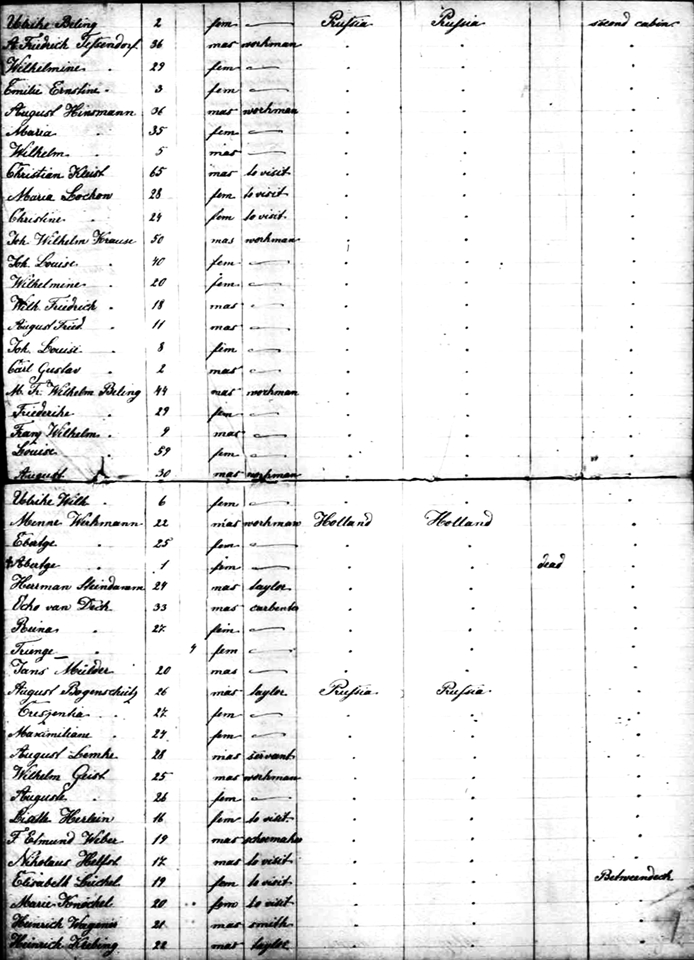 Ulrike Beling 2 fem — Prussia Prussia second cabin
A. Friedrich Tessendorf 36 mas workman . . .
Wilhelmine . 29 fem — . . .
Emilie Ernstine . 3 fem — . . .
August Hinsmann 36 mas workman . . .
Maria . 35 fem — . . .
Wilhelm . 5 mas — . . .
Christian Kleist 65 mas to visit . . .
Maria Lochow 28 fem to visit . . .
Christine . 24 fem to visit . . .
Joh. Wilhelm Krause 50 mas workman . . .
Joh. Louise . 40 fem — . . .
Wilhelmine . 20 fem — . . .
Wilh. Friedrich . 18 mas — . . .
August Fried. . 11 mas — . . .
Joh. Louise . 8 fem — . . .
Carl Gustav . 2 mas — . . .
M. Fr. Wilhelm Beling 44 mas workman . . .
Friederike . 29 fem — . . .
Franz Wilhelm . 9 mas — . . .
Louise . 59 fem — . . .
August . 30 mas workman . . .
Ulrike Wilh. 6 fem — . . .
Menne Werkmann 22 mas workman Holland Holland .
Ebertge . 25 fem — . . .
Abertge . 1 fem — . . dead .
Herrman Steindamm 24 mas taylor . . .
Echo van Deck 33 mas carbenter . . .
Reina . 27 fem — . . .
Trienge . 4 fem — . . .
Jans Mülder 20 mas — . . .
August Bogenschütz 26 mas taylor Prussia Prussia .
Creszentia . 27 fem — . . .
Maximiliane . 24 fem — . . .
August Lemke 28 mas servant . . .
Wilhelm Geist 25 mas workman . . .
Auguste . 26 fem — . . .
Lisette Herlein 16 fem to visit . . .
F. Edmund Weber 19 mas schoemaker . . .
Nikolaus 17 mas to visit . . .
Elisabeth 19 fem to visit . . Betweendeck
Marie Knöchel 20 fem to visit . . .
Heinrich Wagener 21 mas smith . . .
Heinrich Krebing 22 mas taylor . . .